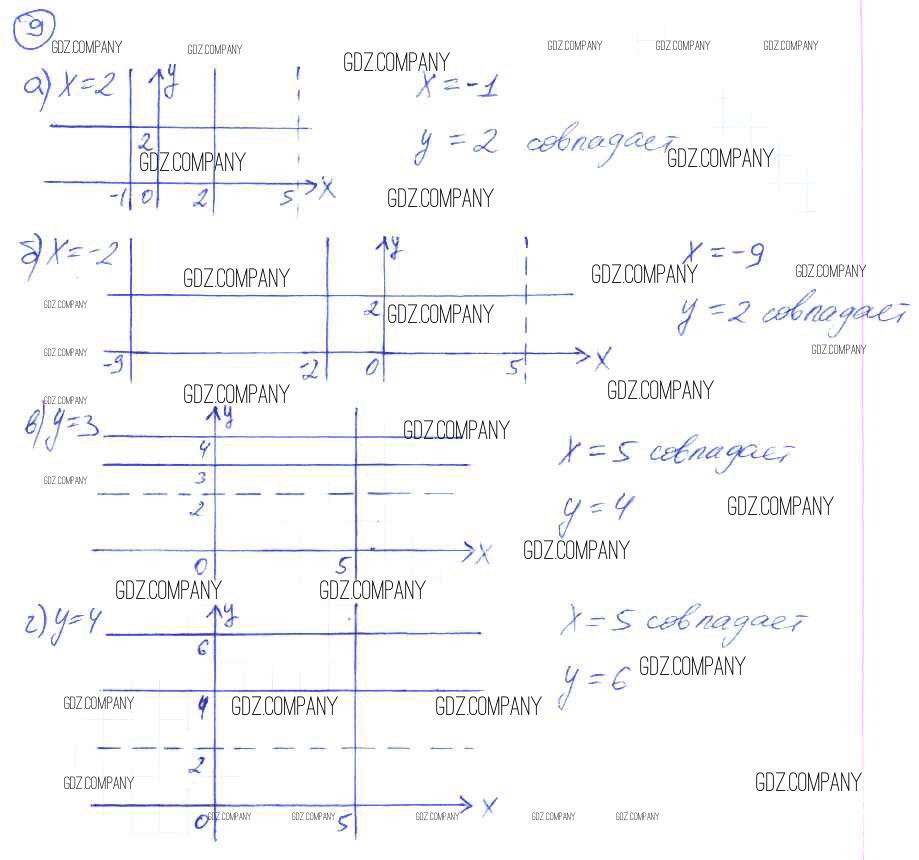 9
GDZ.COMPANY GDZ.COMPANY GDZ.COMPANY GDZ.COMPANY GDZ.COMPANY GDZ.COMPANY
а) x=2 y x=-1
2 y=2 совпадает
GDZ.COMPANY GDZ.COMPANY
-1 0 2 5 x GDZ.COMPANY
б) x=-2 y x=-9
GDZ.COMPANY GDZ.COMPANY GDZ.COMPANY
GDZ.COMPANY 2 GDZ.COMPANY y=2 совпадает
GDZ.COMPANY GDZ.COMPANY
-9 -2 0 5 x
GDZ.COMPANY GDZ.COMPANY GDZ.COMPANY
в) y=3 y GDZ.COMPANY
4 x=5 совпадает
GDZ.COMPANY 3
2 y=4 GDZ.COMPANY
0 5 x GDZ.COMPANY
GDZ.COMPANY GDZ.COMPANY
г) y=4 y x=5 совпадает
6 y=6 GDZ.COMPANY
GDZ.COMPANY 4 GDZ.COMPANY GDZ.COMPANY
2
GDZ.COMPANY GDZ.COMPANY
0 5 x
GDZ.COMPANY GDZ.COMPANY GDZ.COMPANY GDZ.COMPANY GDZ.COMPANY